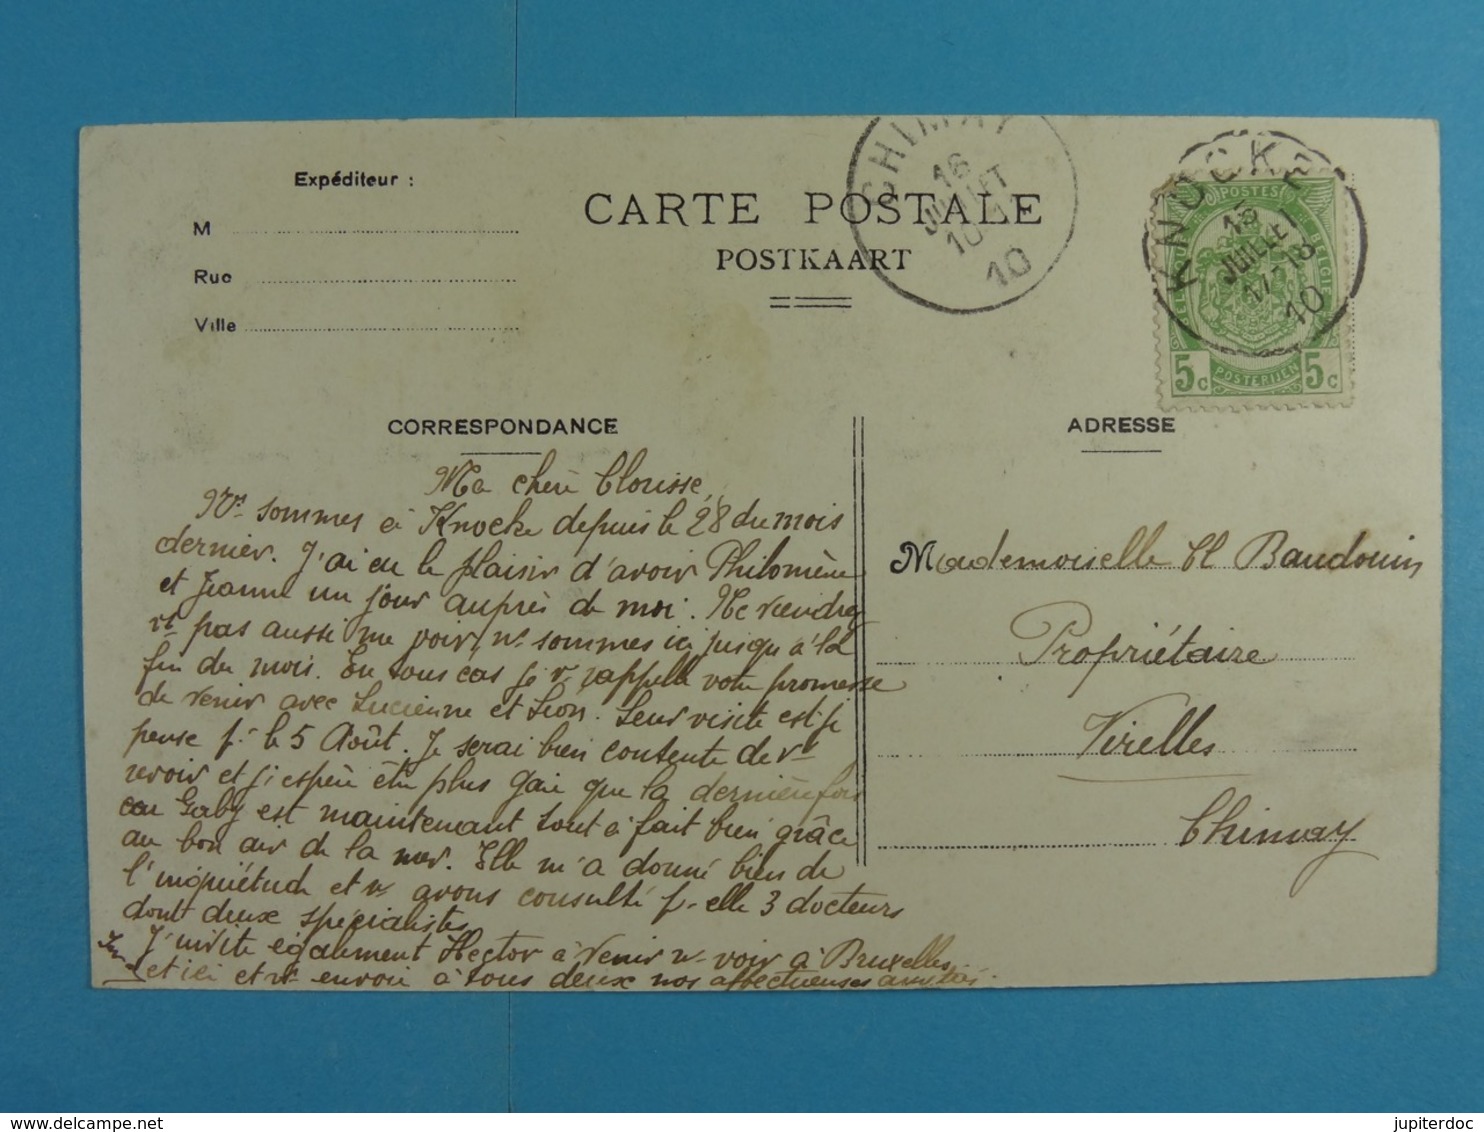 Expéditeur :
M
Rue
Ville
CARTE POSTALE
POSTKAART
CHIMAY
16
JUILLET
10
KNOCKE
15
JUILLET
17-18
10
POSTES
BELGIE
POSTERIJEN
5c 5c
CORRESPONDANCE
ADRESSE
Ma chère Clorisse,
Ns sommes à Knocke depuis le 28 du mois
dernier. J'ai eu le plaisir d'avoir Philomène
et Jeanne un jour auprès de moi. Ne viendrez
vs pas aussi me voir, ns sommes ici jusqu'à la
fin du mois. En tous cas je vs rappelle votre promesse
de venir avec Lucienne et Léon. Leur visite est je
pense p. le 5 Août. Je serai bien contente de vs
revoir et j'espère être plus gaie que la dernière fois
car Gaby est maintenant tout à fait bien grâce
au bon air de la mer. Elle m'a donné bien de
l'inquiétude et ns avons consulté p. elle 3 docteurs
dont deux spécialistes
J'invite également Hector à venir ns voir à Bruxelles
et ici et vs envoie à tous deux nos affectueuses amitiés.
Mademoiselle Cl Baudouin
Propriétaire
Virelles
Chimay
delcampe.net
jupiterdoc